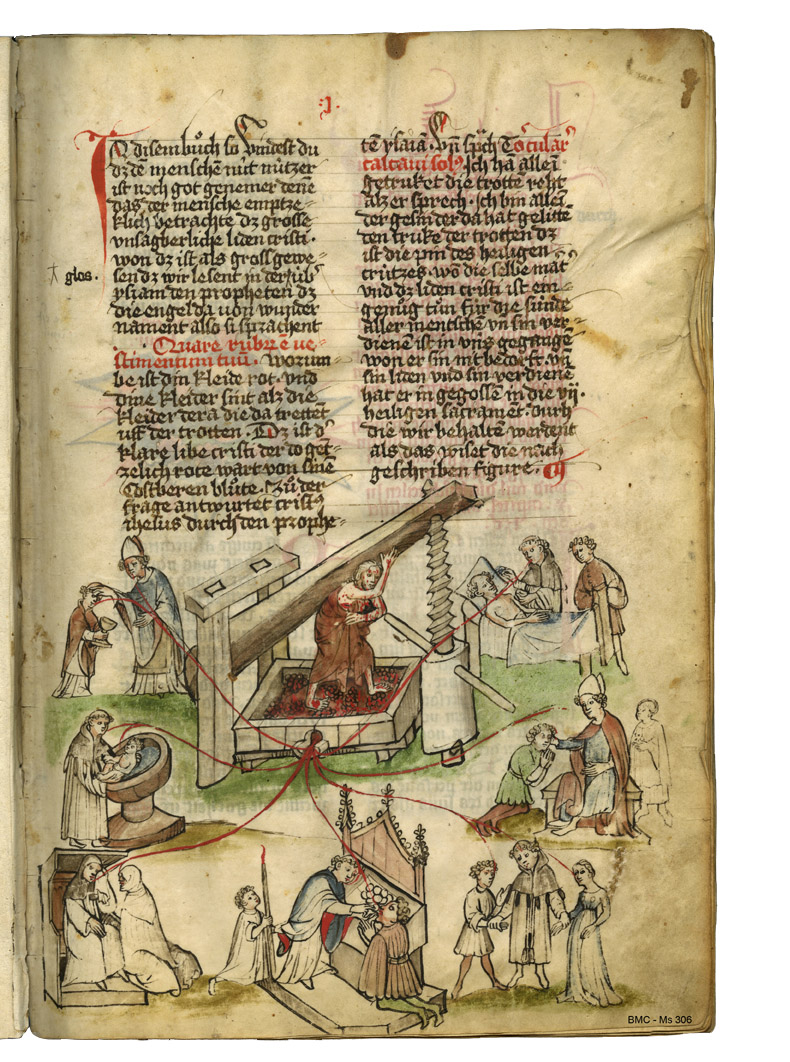 .j.
IN disem buch so vindest du
dz dē menschē nüt nützer
ist noch got genemer denē
das der mensche emptze⸗
klich betrachte dz grosse
vnsagberliche liden cristi ·
won dz ist als gross gewe⸗
sen dz wir lesent in der
glos .
ysiam den propheten dz
die engel da von wunder
nament also si sprachent
Quare rubrū ē ve⸗
stimentum tuū . worum
be ist din kleide rot . vnd
dine kleider sint alz die
kleider dera die da trettet
uff der trotten . Dz ist dˢ
klare libe cristi der do getz⸗
zelich rote wart von sinē
costberen blůte . Zů der
frage antwurtet cristꝰ
ihesus durch den prophe⸗
tē ysaiā . vn̄ sp̄ch Torcularˢ
calcavi solꝰ Ich han allein
getruket die trotte reht
alz er sprech . ich bin allei⸗
der gesin der da hat gelitte
den truke der trotten dz
ist die pin des heiligen
crützes . wō die selbe mat
vnd dz liden cristi ist ein⸗
genůg tůn für die sünde
aller mentschē vn̄ sin ver⸗
dienē ist in vns gegangē
won er sin nit bedorft vn̄
sin liden vnd sin verdienē
hat er in gegossē in die vij .
heiligen sacramēt . durh
die wir behaltē werdent
als das wiset die nach
geschriben figure .
BMC - Ms 306